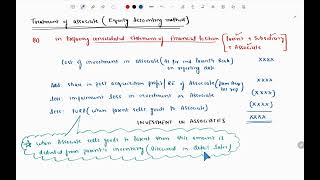 Treatment of Associate (Equity Accounting method)
(A) in preparing consolidated statement of financial Position (Parent + Subsidiary) + Associate
Cost of investment in Associate (As per and Parent's Books) on reporting date XXXX
Add: share in Post acquisition Profit / RE of Associate XXXX
Less: impairment loss in investment in Associate (XXXX)
Less: PURP (when parent sells goods to Associate) (XXXX)
INVESTMENT IN ASSOCIATES XXXX
when Associate sells goods to Parent then this amount is
deducted from parent's inventory (Discussed in detail later)